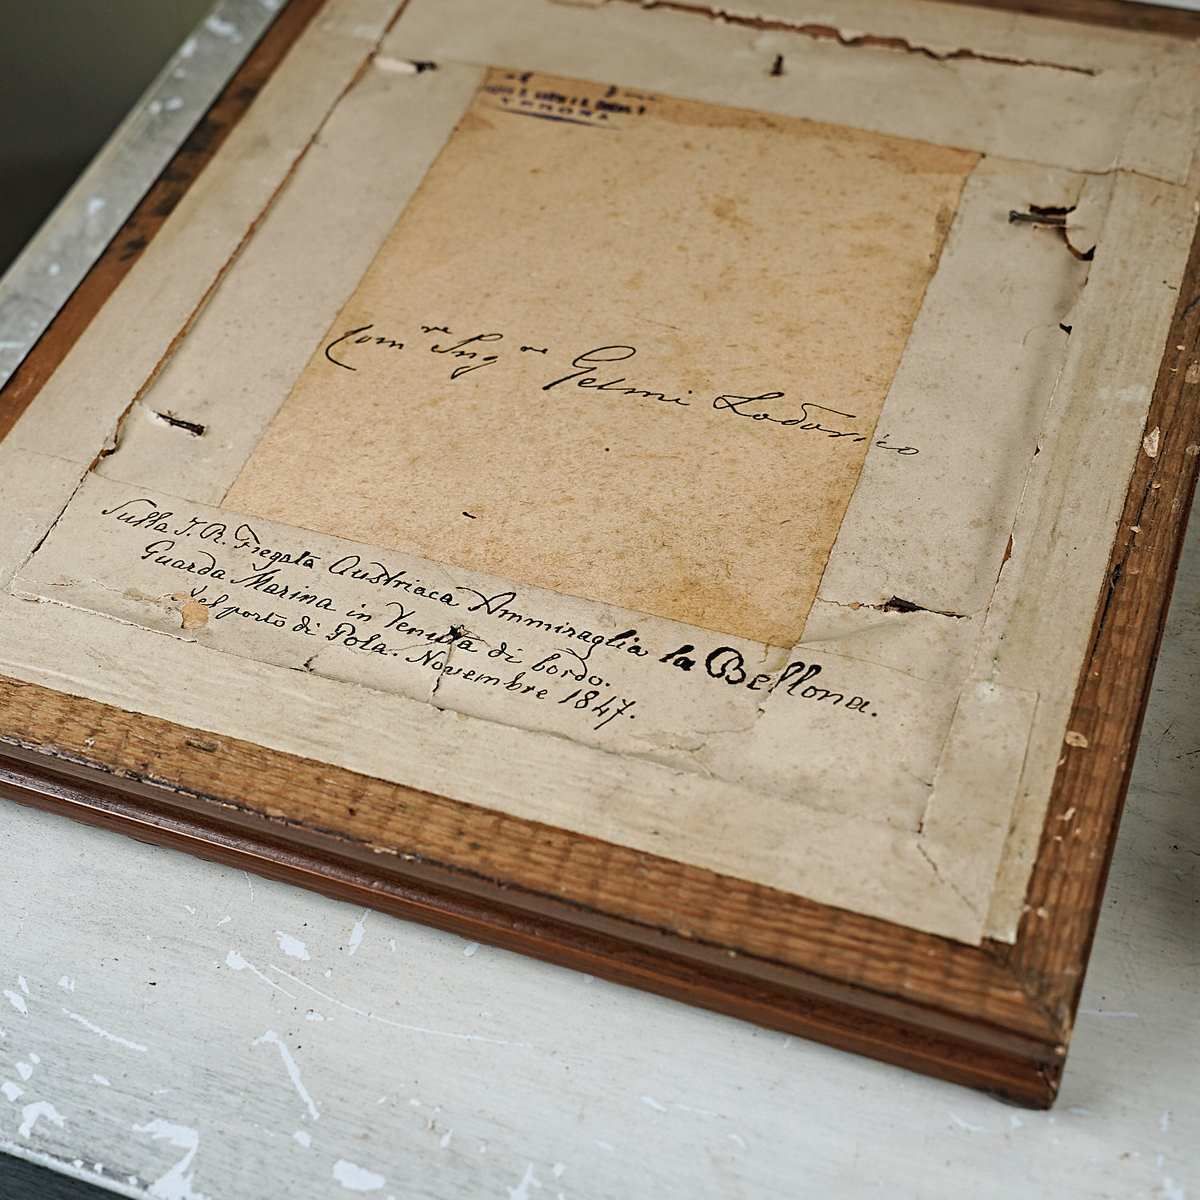 Com.re Ing.re Gelmi Lodovico
Sulla I. R. Fregata Austriaca Ammiraglia la Bellona.
Guarda Marina in Tenuta di bordo.
Nel porto di Pola. Novembre 1847.